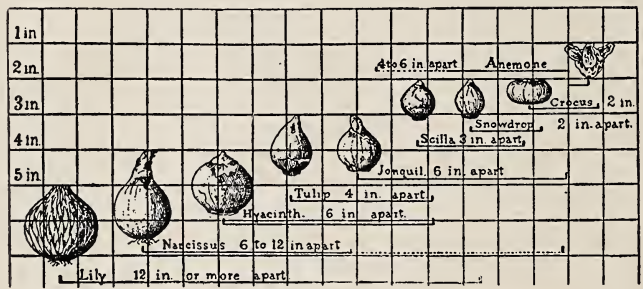 1 in
2 in.
4 to 6 in apart Anemone
3 in.
Crocus 2 in.
Snowdrop 2 in. apart.
4 in.
Scilla 3 in. apart
5 in.
Jonquil. 6 in apart
Tulip 4 in. apart.
Hyacinth. 6 in apart.
Narcissus 6 to 12 in apart
Lily 12 in. or more apart